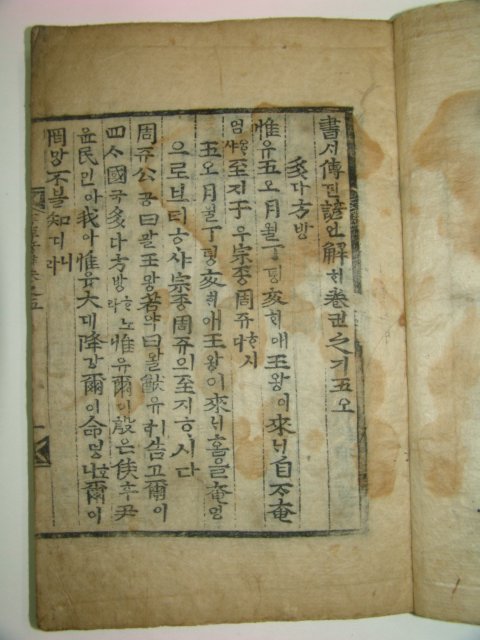 書셔傳뎐諺언解ᄒᆡ卷권之지五오
多다方방
惟유五오月월丁뎡亥ᄒᆡ애王왕이來ᄅᆡ自ᄌᆞ奄
엄ᄒᆞ샤至지于우宗종周쥬ᄒᆞ시다
五오月월丁뎡亥ᄒᆡ애王왕이來ᄅᆡ홈을奄엄
으로브티ᄒᆞ샤宗종周쥬의至지ᄒᆞ시다
周쥬公공曰왈王왕若약曰왈猷유告고爾이
四ᄉᆞ國국多다方방ᄒᆞ노라惟유爾이殷은侯후尹
윤民민아我아惟유大대降강爾이命명爾이
罔망不블知디니라